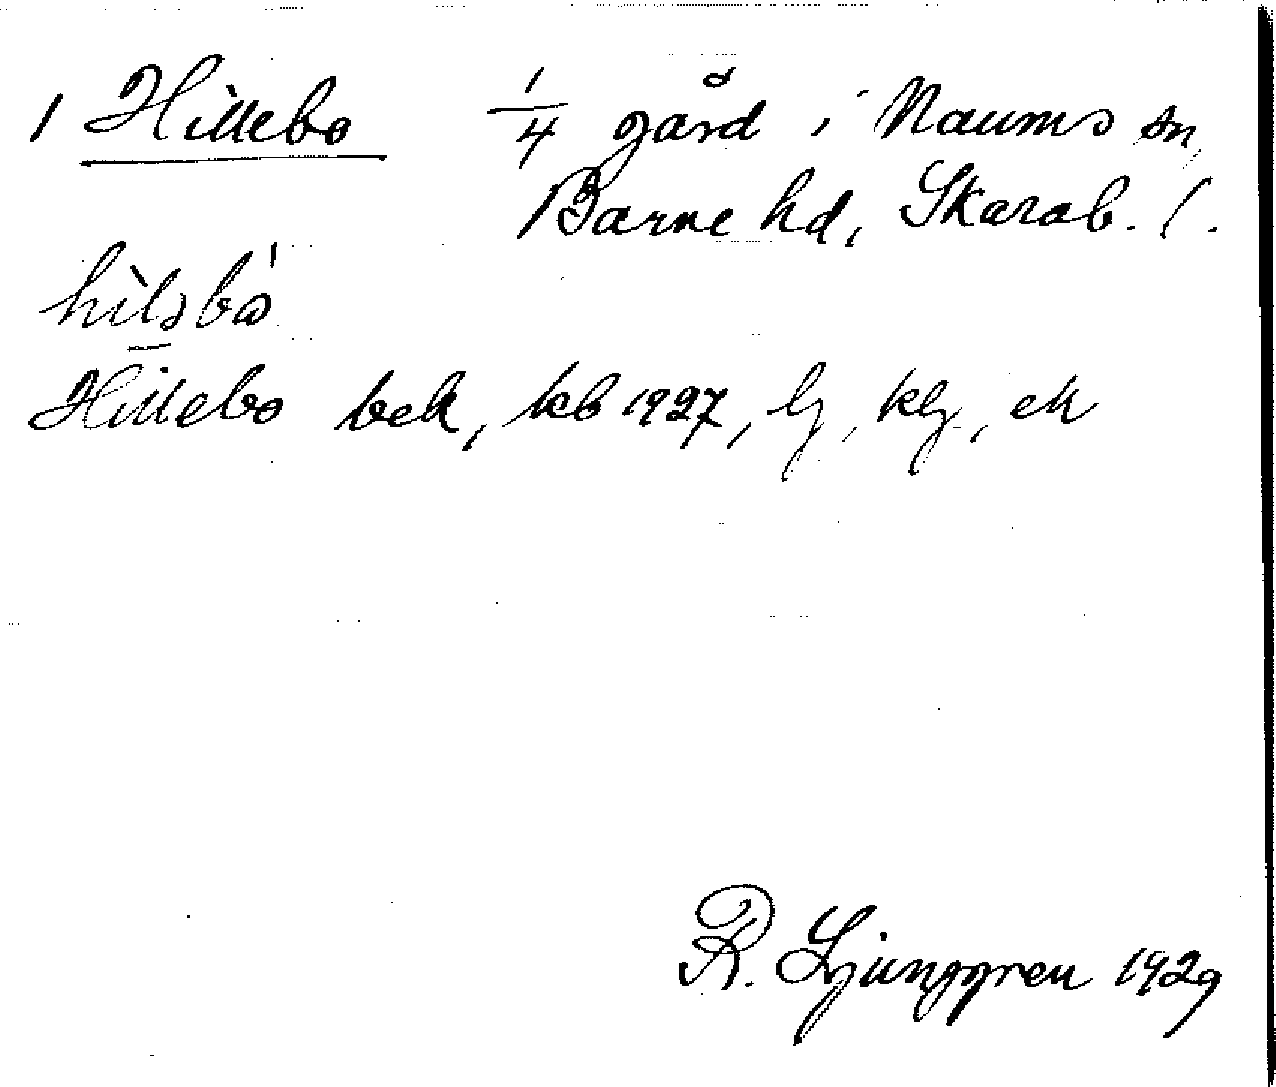 1 Hillebo 1/4 gård i Naums sn,
Barne hd, Skarab. l.
Hillebo bek, kb 1927, lj, klj, ek
R. Ljunggren 1929